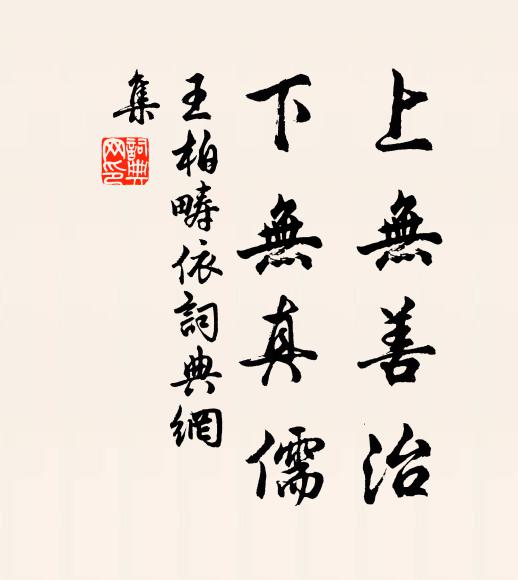 上無善治
下無真儒
王柏疇依詞典網
集
詞典
网印